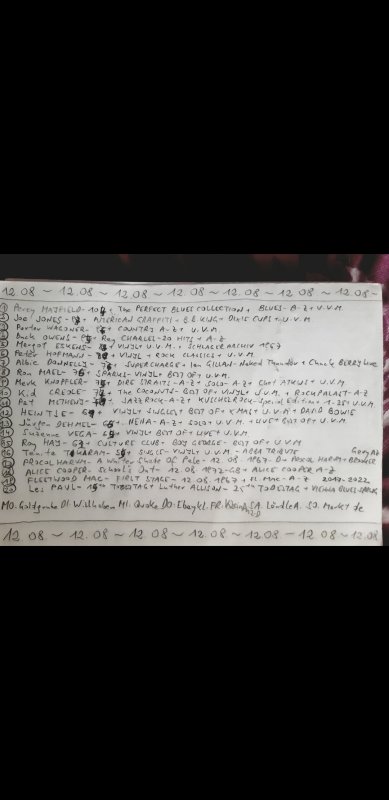 12.08 ~ 12.08 ~ 12.08 ~ 12.08 ~ 12.08 ~ 12.08 ~ 12.08 ~ 12.08 -
① Percy MAYFIELD - + The PERFECT BLUES COLLECTION + BLUES - A-Z + U.V.M.
② Joe JONES - + AMERICAN GRAFFITI + B.E.KING + DIXIE CUPS + U.V.M
③ Porter WAGONER - + COUNTRY A-Z + U.V.M.
④ Buck OWENS - + Ray CHARLES - 20 HITS + A-Z
⑤ Margot ESKENS - + VINYL + U.V.M. + SCHLAGER ARCHIV 1957
⑥ Peter HOFMANN - + VINYL + ROCK CLASSICS + U.V.M.
⑦ Albie DONNELLY - + SUPERCHARGE + Ian GILLAN - Naked Thunder + Chuck BERRY Live
⑧ Ron MAEL - + SPARKS - VINYL + BEST OF + U.V.M.
⑨ Mark KNOPFLER - + DIRE STRAITS - A-Z + SOLO - A-Z + Chet ATKINS + U.V.M.
⑩ Kid CREOLE - + The COCONUTS - BEST OF + VINYL + U.V.M. + ROCKPALAST - A-Z
⑪ Pat METHENY - + JAZZROCK - A-Z + KUSCHELROCK - Special Edition + U.V.M
⑫ HEINTJE - + VINYL + SINGLES + BEST OF + XMAS + U.V.M + DAVID BOWIE
⑬ Jürgen DEHMEL - + NENA - A-Z + SOLO + U.V.M + LIVE + BEST OF + U.V.M.
⑭ Suzanne VEGA - + VINYL + BEST OF + LIVE + U.V.M.
⑮ Roy HAY - + CULTURE CLUB + BOY GEORGE - BEST OF + U.V.M.
⑯ Tanita TIKARAM - + SINGLE - VINYL + U.V.M. - ABBA TRIBUTE
⑰ PROCOL HARUM - A Whiter Shade Of Pale - 12.08.1967 - D + PROCOL HARUM + BROOKER
⑱ ALICE COOPER - School's Out - 12.08.1972 - GB + ALICE COOPER A-Z
⑲ FLEETWOOD MAC - FIRST STAGE - 12.08.1967 + Fl. Mac - A-Z 2017-2022
⑳ Les PAUL - TODESTAG + Luther ALLISON - 25th TODESTAG + VIENNA BLUES
MO. Goldgrube DI. Willhaben MI. Quoka DO. Ebaykl. FR. SA. LändleA. SO. Markt de
- 12.08 ~ 12.08 ~ 12.08 ~ 12.08 ~ 12.08 - 12.08 ~ 12.08 ~ 12.08